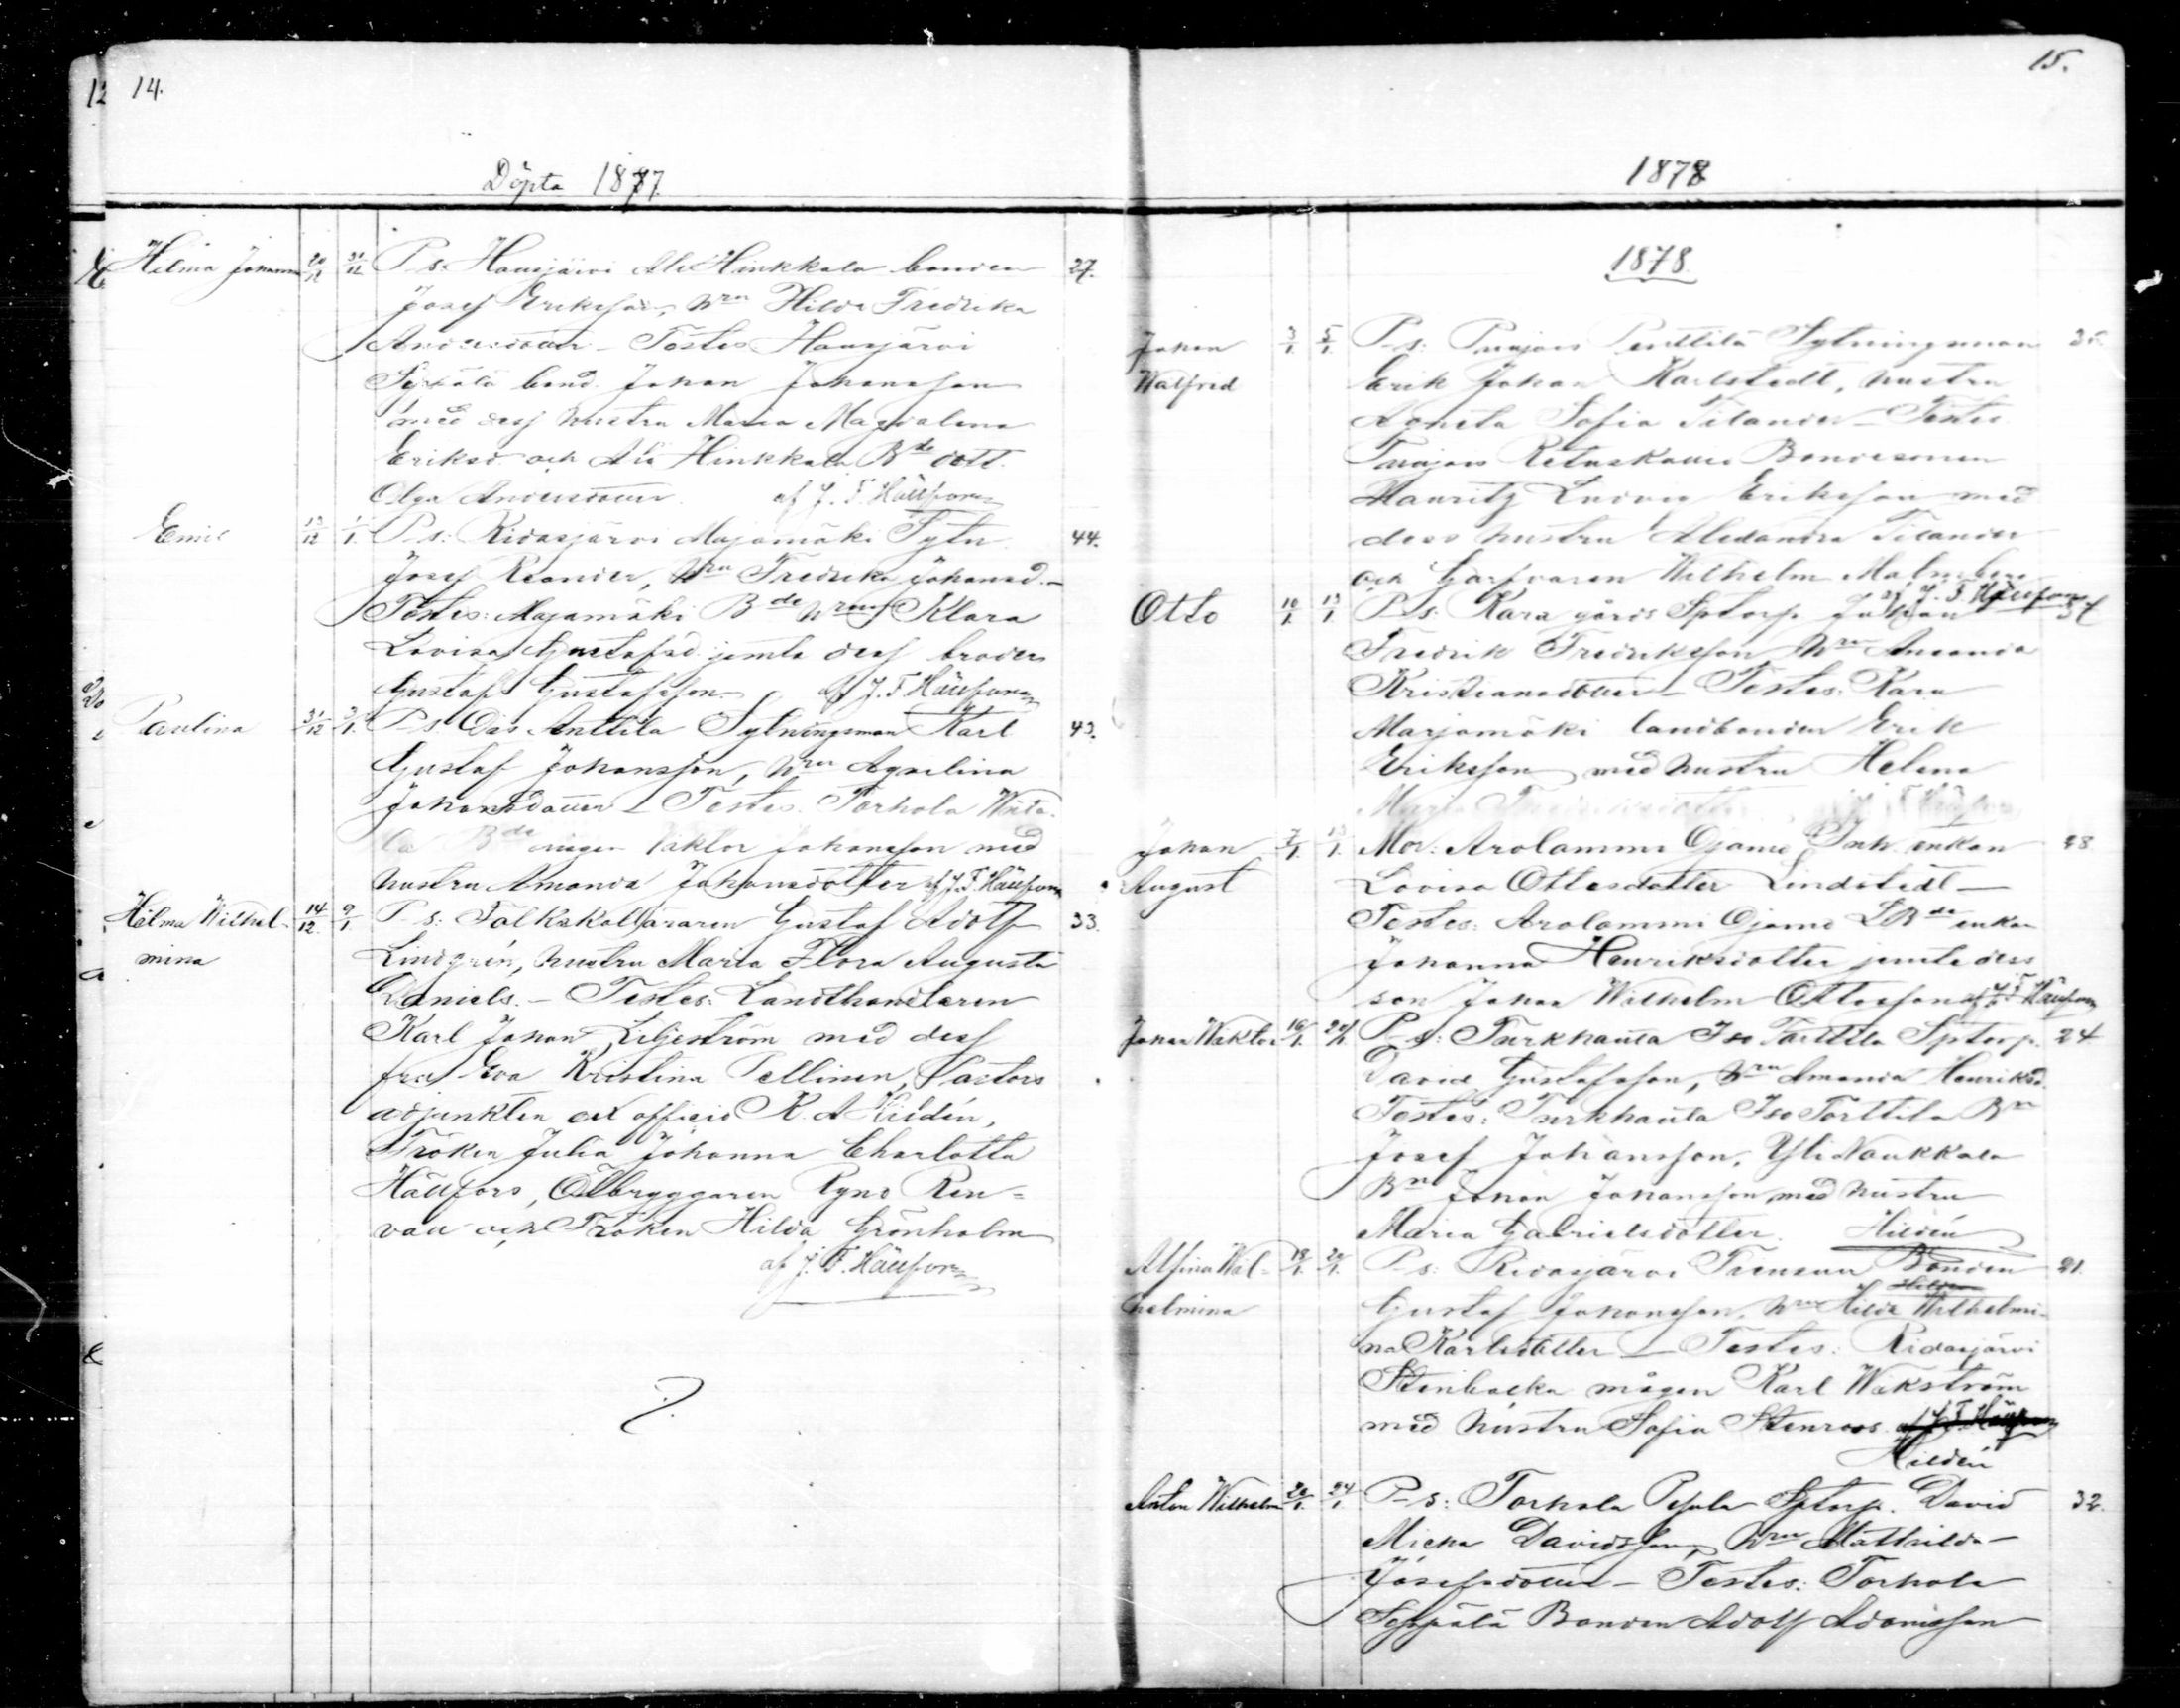 12 14.
Döpta 1877.
Hilma Johanna 20/12 31/12 P-s. Hausjärvi Ali Hinkkala bonden 27.
Josef Eriksson, Hru Hilda Fredrika
Andersdotter - Testes Hausjärvi
Seppälä bond. Johan Johansson
med dess hustru Maria Magdalena
Eriksd. och Ali Hinkkala Bde dott.
Olga Andersdotter. af J. F. Hällfors
Emil 13/12 1/1. P-s: Ridasjärvi Majamäki Sytn. 44.
Josef Reander, Hru Fredrika Johansd. -
Testes: Majamäki Bde Hrun Klara
Lovisa Gustafsd. jemte dess broder
Gustaf Gustafsson. af J. F. Hällfors
Paulina 31/12 3/1. P-s Ois Anttila Sytningsman Karl 43.
Gustaf Johansson, Hru Agnelina
Johansdotter - Testes. Torhola
Bde mågen Viktor Johansson med
hustru Amanda Johansdotter af J. F. Hällfors
Hilma Wilhel- 14/12. 9/1 P-s: Folkskolläraren Gustaf Adolf 33.
mina Lindgrén, hustru Maria Flora Augusta
Daniels. - Testes: Landthandlaren
Karl Johan Liljeström med dess
fru Eva Kristina Pellinen, Pastors
adjunkten ex officio K. A. Hildén,
Fröken Julia Johanna Charlotta
Hällfors, Ölbryggaren Ren-
vall och Fröken Hilda Grönholm
af J. F. Hällfors
15.
1878
1878.
Johan 3/1. 5/1. P-s: Puujois Penttilä Sytningsman 35.
Walfrid Erik Johan Karlstedt, hustru
Agneta Sofia Tilander - Testes
Puujois Bondesonen
Mauritz Ludvig Eriksson med
dess hustru Alexandra Tilander
och Garfvaren Wilhelm Malmberg
af J. F. Hällfors
Otto 10/1 13/1 P-s: Kara gårds Sptorp. Johan
Fredrik Fredriksson Hru Amanda
Kristiansdotter - Testes: Kara
Marjamäki landbonden Erik
Eriksson med hustru Helena
Maria
Johan 7/1. 13/1. Mor: Arolammi Ojama Inh. enkan 48
August Lovisa Ottosdotter Lindstedt -
Testes: Arolammi Ojama LBde enkan
Johanna Henriksdotter jemte dess
son Johan Wilhelm Ottosson af J. F. Hällfors
Johan Wiktor 16/1. 20/1 P-s: Turkhauta Iso Torttila Sptorp. 24
David Gustafsson, Hru Amanda Henriksd.
Testes: Turkhauta Iso Torttila Bn
Josef Johansson, Yli Naukkala
Bn Johan Johansson med hustru
Maria Gabrielsdotter. Hildén
Alfina Wil- 18/1. 20/1. P-s: Ridasjärvi Bonden 21.
helmina Hildén
Gustaf Johansson, Hru Hilda Wilhelmi-
na Karlsdotter - Testes: Ridasjärvi
Stenbacka mågen Karl Wikström
med hustru Sofia Stenroos. af J. F. Hällfors
Hildén
Anton Wilhelm 20/1. 24/1 P-s: Torhola Sptorp. David 32.
Micka Davidsson, Hru Mathilda
Josefsdotter - Testes: Torhola
Seppälä Bonden Adolf Adamsson